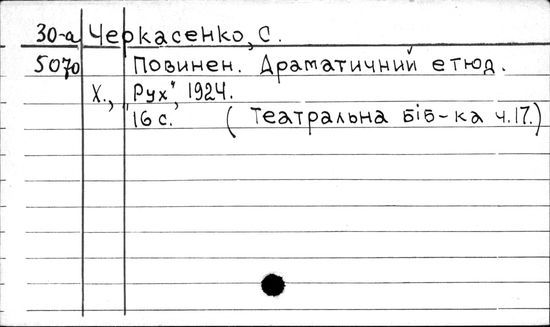 30-а Черкасенко, С.
5070 Повинен. Драматичний етюд.
Х., „Рух", 1924.
16 с. (Театральна біб-ка ч. 17.)